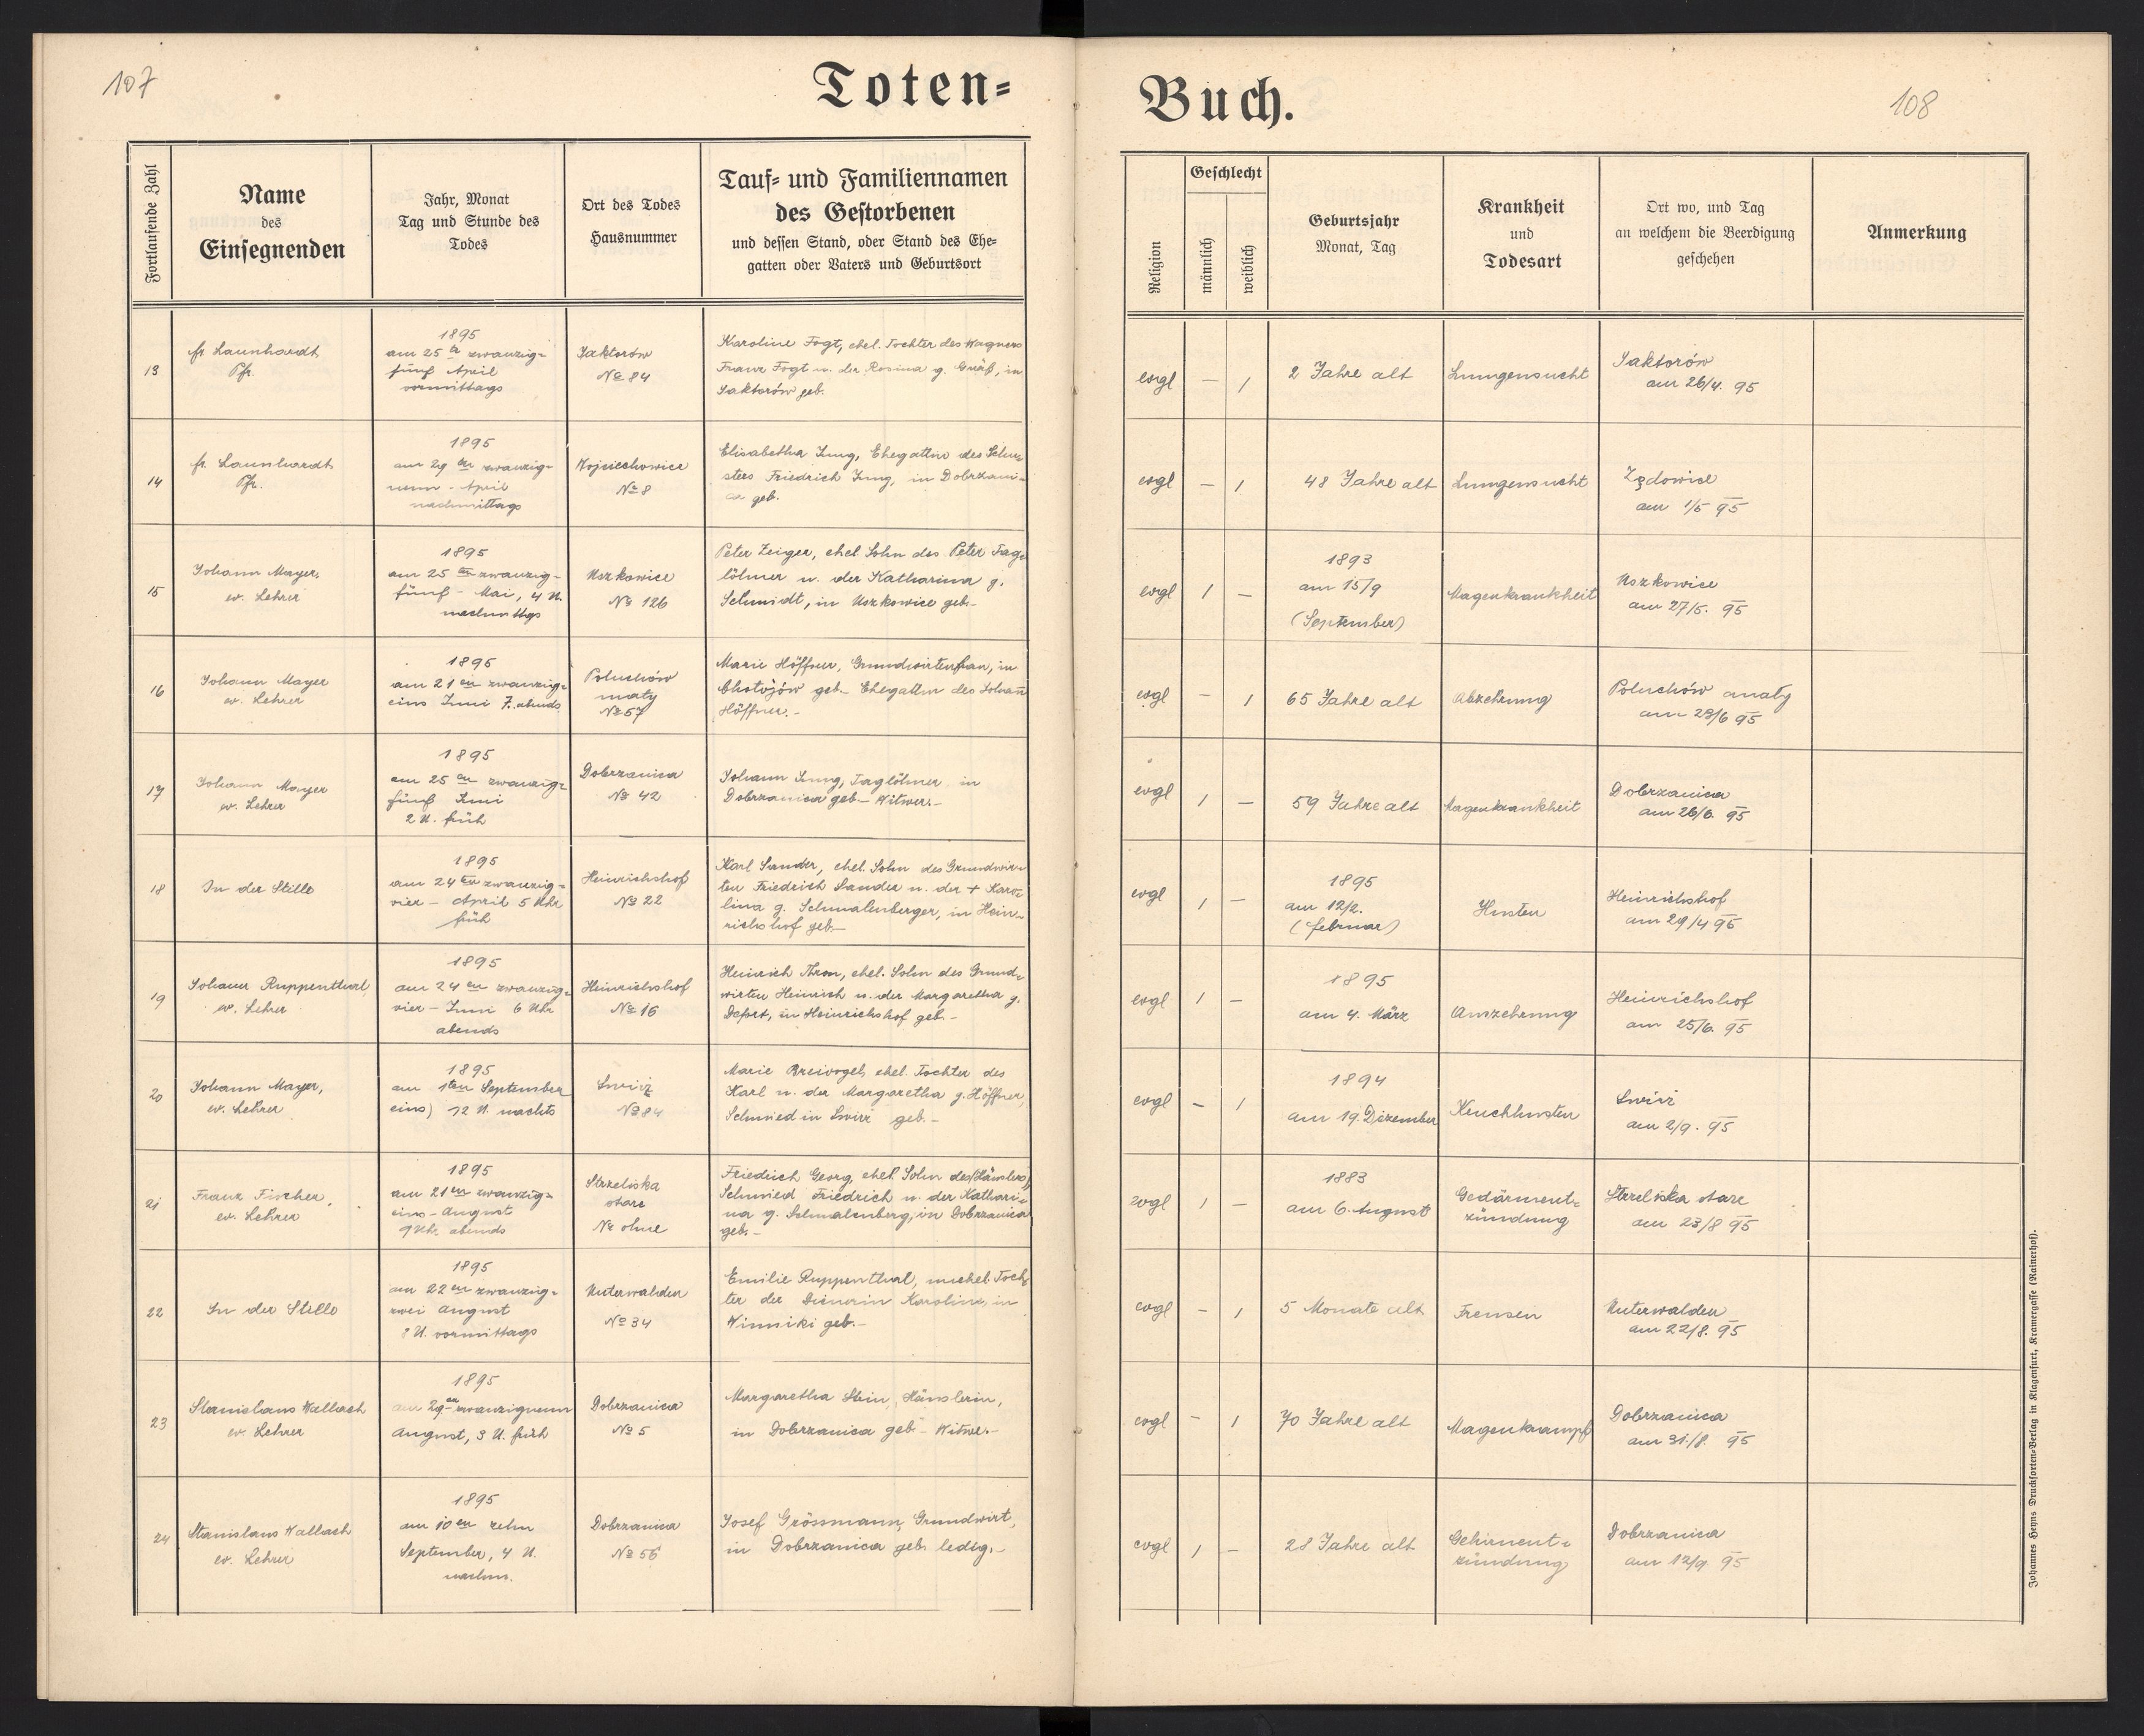 107
Toten=
Fortlaufende Zahl
Name
des
Einsegnenden
Jahr, Monat
Tag und Stunde des
Todes
Ort des Todes
Hausnummer
Tauf= und Familiennamen
des Gestorbenen
und dessen Stand, oder Stand des Ehe=
gatten oder Vaters und Geburtsort
13
fr. Launhardt
Pfr.
1895
am 25 te zwanzig=
fünf April
vormittags
Jaktorów
№ 84
Karoline Fogt, ehel. Tochter des Wagners
Franz Fogt u. der Rosina g. Gräß, in
Jaktorów geb.
14
fr. Launhardt
Pfr.
1895
am 29 en zwanzig=
neun - April
nachmittags
Wojciechowice
№ 8
Elisabetha Jung, Ehegattin des Schu=
sters Friedrich Jung, in Dobrzani=
ca geb.
15
Johann Mayer,
ev. Lehrer
1895
am 25 ten zwanzig=
fünf - Mai, 4 U.
nachmittgs
Uszkowice
№ 126
Peter Zeiger, ehel. Sohn des Peter Tag=
löhner u. der Katharina g.
Schmidt, in Uszkowice geb.-
16
Johann Mayer
ev. Lehrer
1895
am 21 en zwanzig=
eins Juni 7. abends
Poluchów
maty
№ 57
Marie Höffner, Grundwirtenfrau, in
Chotojów geb.- Ehegattin des Johann
Höffner.-
17
Johann Mayer
ev. Lehrer
1895
am 25 en zwanzig=
fünf Juni
2 U. früh
Dobrzanica
№ 42
Johann Jung, Taglöhner in
Dobrzanica geb.- Witwer.-
18
In der Stille
1895
am 24 ten zwanzig=
vier - April 5 Uhr
früh
Heinrichshof
№ 22
Karl Sander, ehel. Sohn des Grundwir=
ten Friedrich Sander u. der + Karo=
lina g. Schmalenberger, in Hein=
richshof geb.-
19
Johann Ruppenthal,
ev. Lehrer
1895
am 24 en zwanzig=
vier - Juni 6 Uhr
abends
Heinrichshof
№ 16
Heinrich Thron, ehel. Sohn des Grund=
wirten Heinrich u. der Margaretha g.
in Heinrichshof geb.-
20
Johann Mayer,
ev. Lehrer
1895
am 1ten September
eins) 12 U. nachts
Swirz
№ 84
Marie Breivogel, ehel. Tochter des
Karl u. der Margaretha g. Höffner,
Schmied in Swirz geb.-
21
Franz Fischer,
ev. Lehrer
1895
am 21 en zwanzig=
eins - August
9 Uhr abends
Strzeliska
stare
№ ohne
Friedrich Georg, ehel. Sohn des (Häuslers)
Schmied Friedrich u. der Kathari=
na g. Schmalenberg, in Dobrzanica
geb.-
22
In der Stille
1895
am 22 en zwanzig=
zwei August
8 U. vormittags
Unterwalden
№ 34
Emilie Ruppenthal, unehel. Toch=
ter der Dienerin Karoline, in
Winniki geb.-
23
Stanislaus Wallach
ev. Lehrer
1895
am 29 en zwanzigneun
August, 3 U. früh
Dobrzanica
№ 5
Margaretha Stein, Häuslerin,
in Dobrzanica geb.- Witwe.-
24
Stanislaus Wallach
ev. Lehrer
1895
am 10 en zehn
September, 4 U.
nachm.
Dobrzanica
№ 56
Josef Grössmann, Grundwirt,
in Dobrzanica geb. ledig.-
Buch.
108
Religion
Geschlecht
männlich
weiblich
Geburtsjahr
Monat, Tag
Krankheit
und
Todesart
Ort wo, und Tag
an welchem die Beerdigung
geschehen
Anmerkung
evgl – 1
2 Jahre alt
Lungensucht
Jaktorów
am 26/4. 95
evgl – 1
48 Jahre alt
Lungensucht
Zędowice
am 1/5 95
evgl 1 –
1893
am 15/9
(September)
Magenkrankheit
Uszkowice
am 27/5. 95
evgl – 1
65 Jahre alt
Abzehrung
Poluchów maty
am 23/6 95
evgl 1 –
59 Jahre alt
Magenkrankheit
Dobrzanica
am 26/6. 95
evgl 1 –
1895
am 12/2.
(Februar)
Husten
Heinrichshof
am 29/4 95
evgl 1 –
1895
am 4. März
Auszehrung
Heinrichshof
am 25/6. 95
evgl – 1
1894
am 19. Dezember
Keuchhusten
Swirz
am 2/9. 95
evgl 1 –
1883
am 6. August
Gedärment=
zündung
Strzeliska stare
am 23/8 95
evgl – 1
5 Monate alt
Frensen
Unterwalden
am 22/8. 95
evgl – 1
70 Jahre alt
Magenkrampf
Dobrzanica
am 31./8. 95
evgl 1 –
28 Jahre alt
Gehirnent=
zündung
Dobrzanica
am 12/9 95
Johannes Heyns Drucksorten=Verlag in Klagenfurt, Kramergasse (Rainerhof).